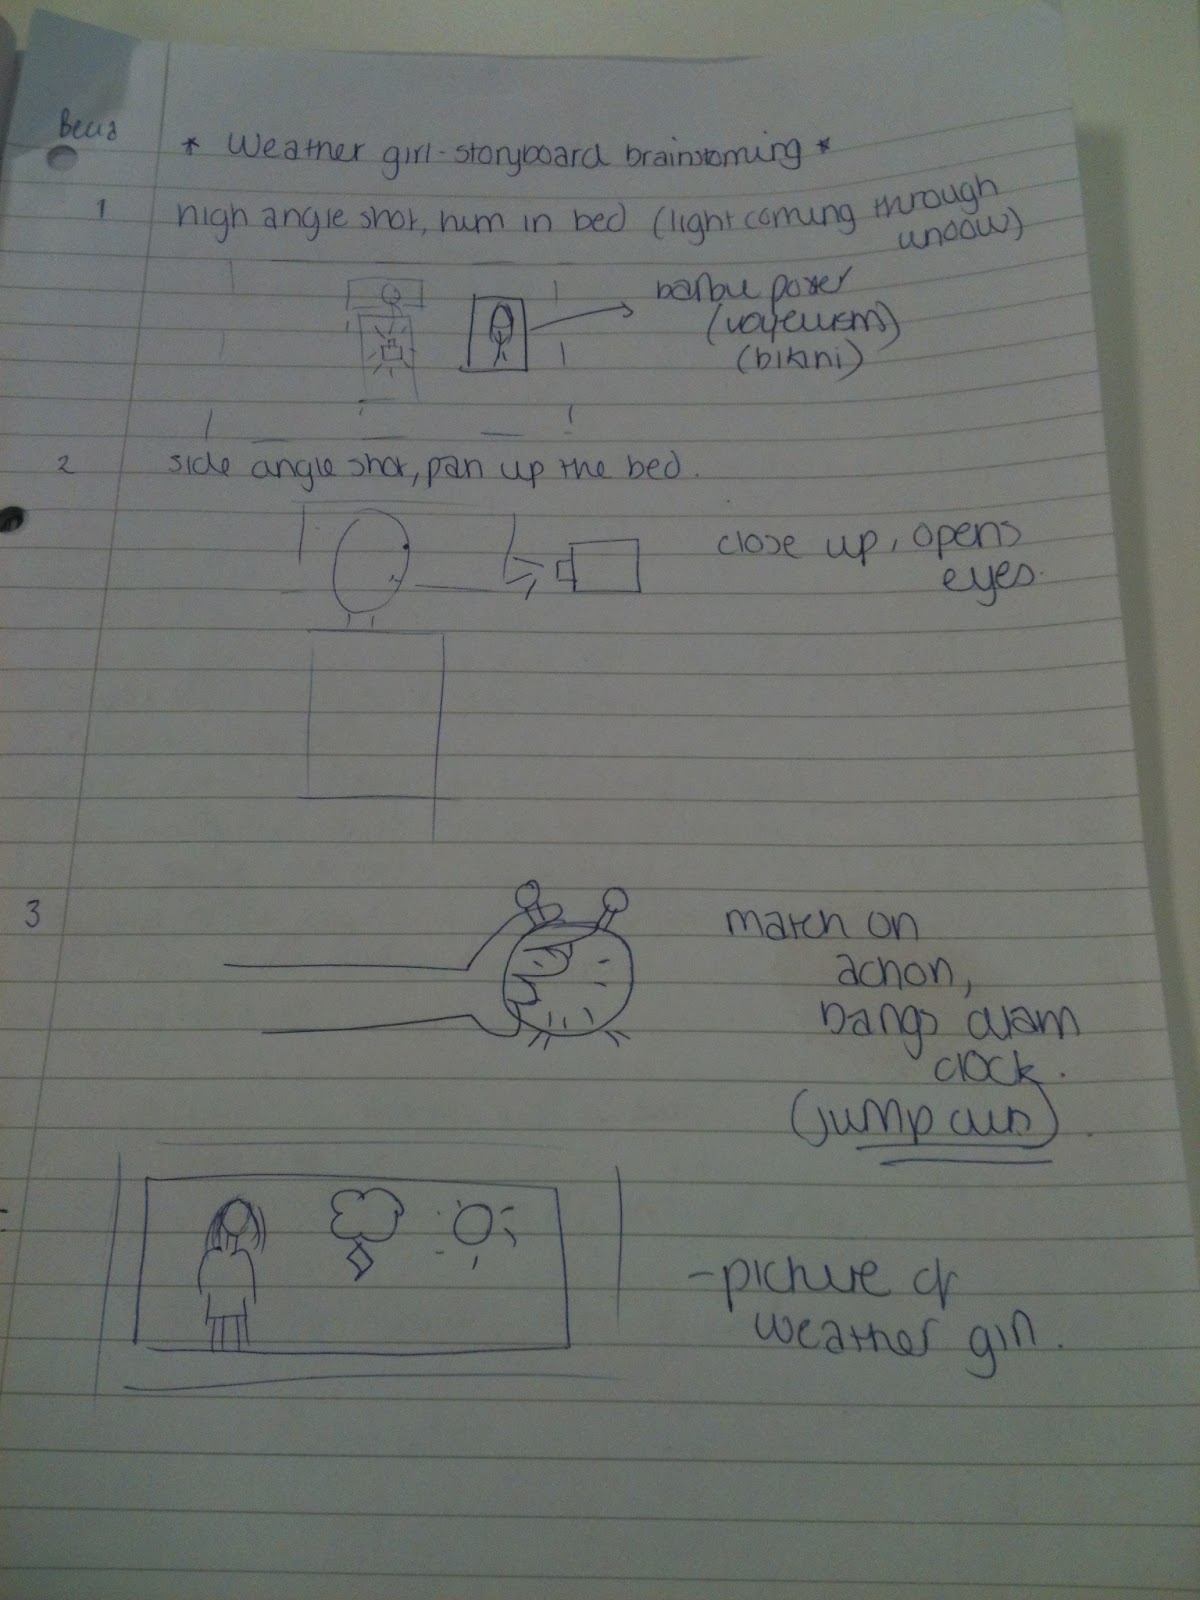 Becca
* Weather girl - storyboard brainstoming *
1 high angle shot, him in bed (light coming through
window)
barbie poster
(voyeurism)
(bikini)
2 side angle shot, pan up the bed.
close up, opens
eyes.
3 match on
action,
bangs alarm
clock.
(jump cuts)
- picture of
weather girl.